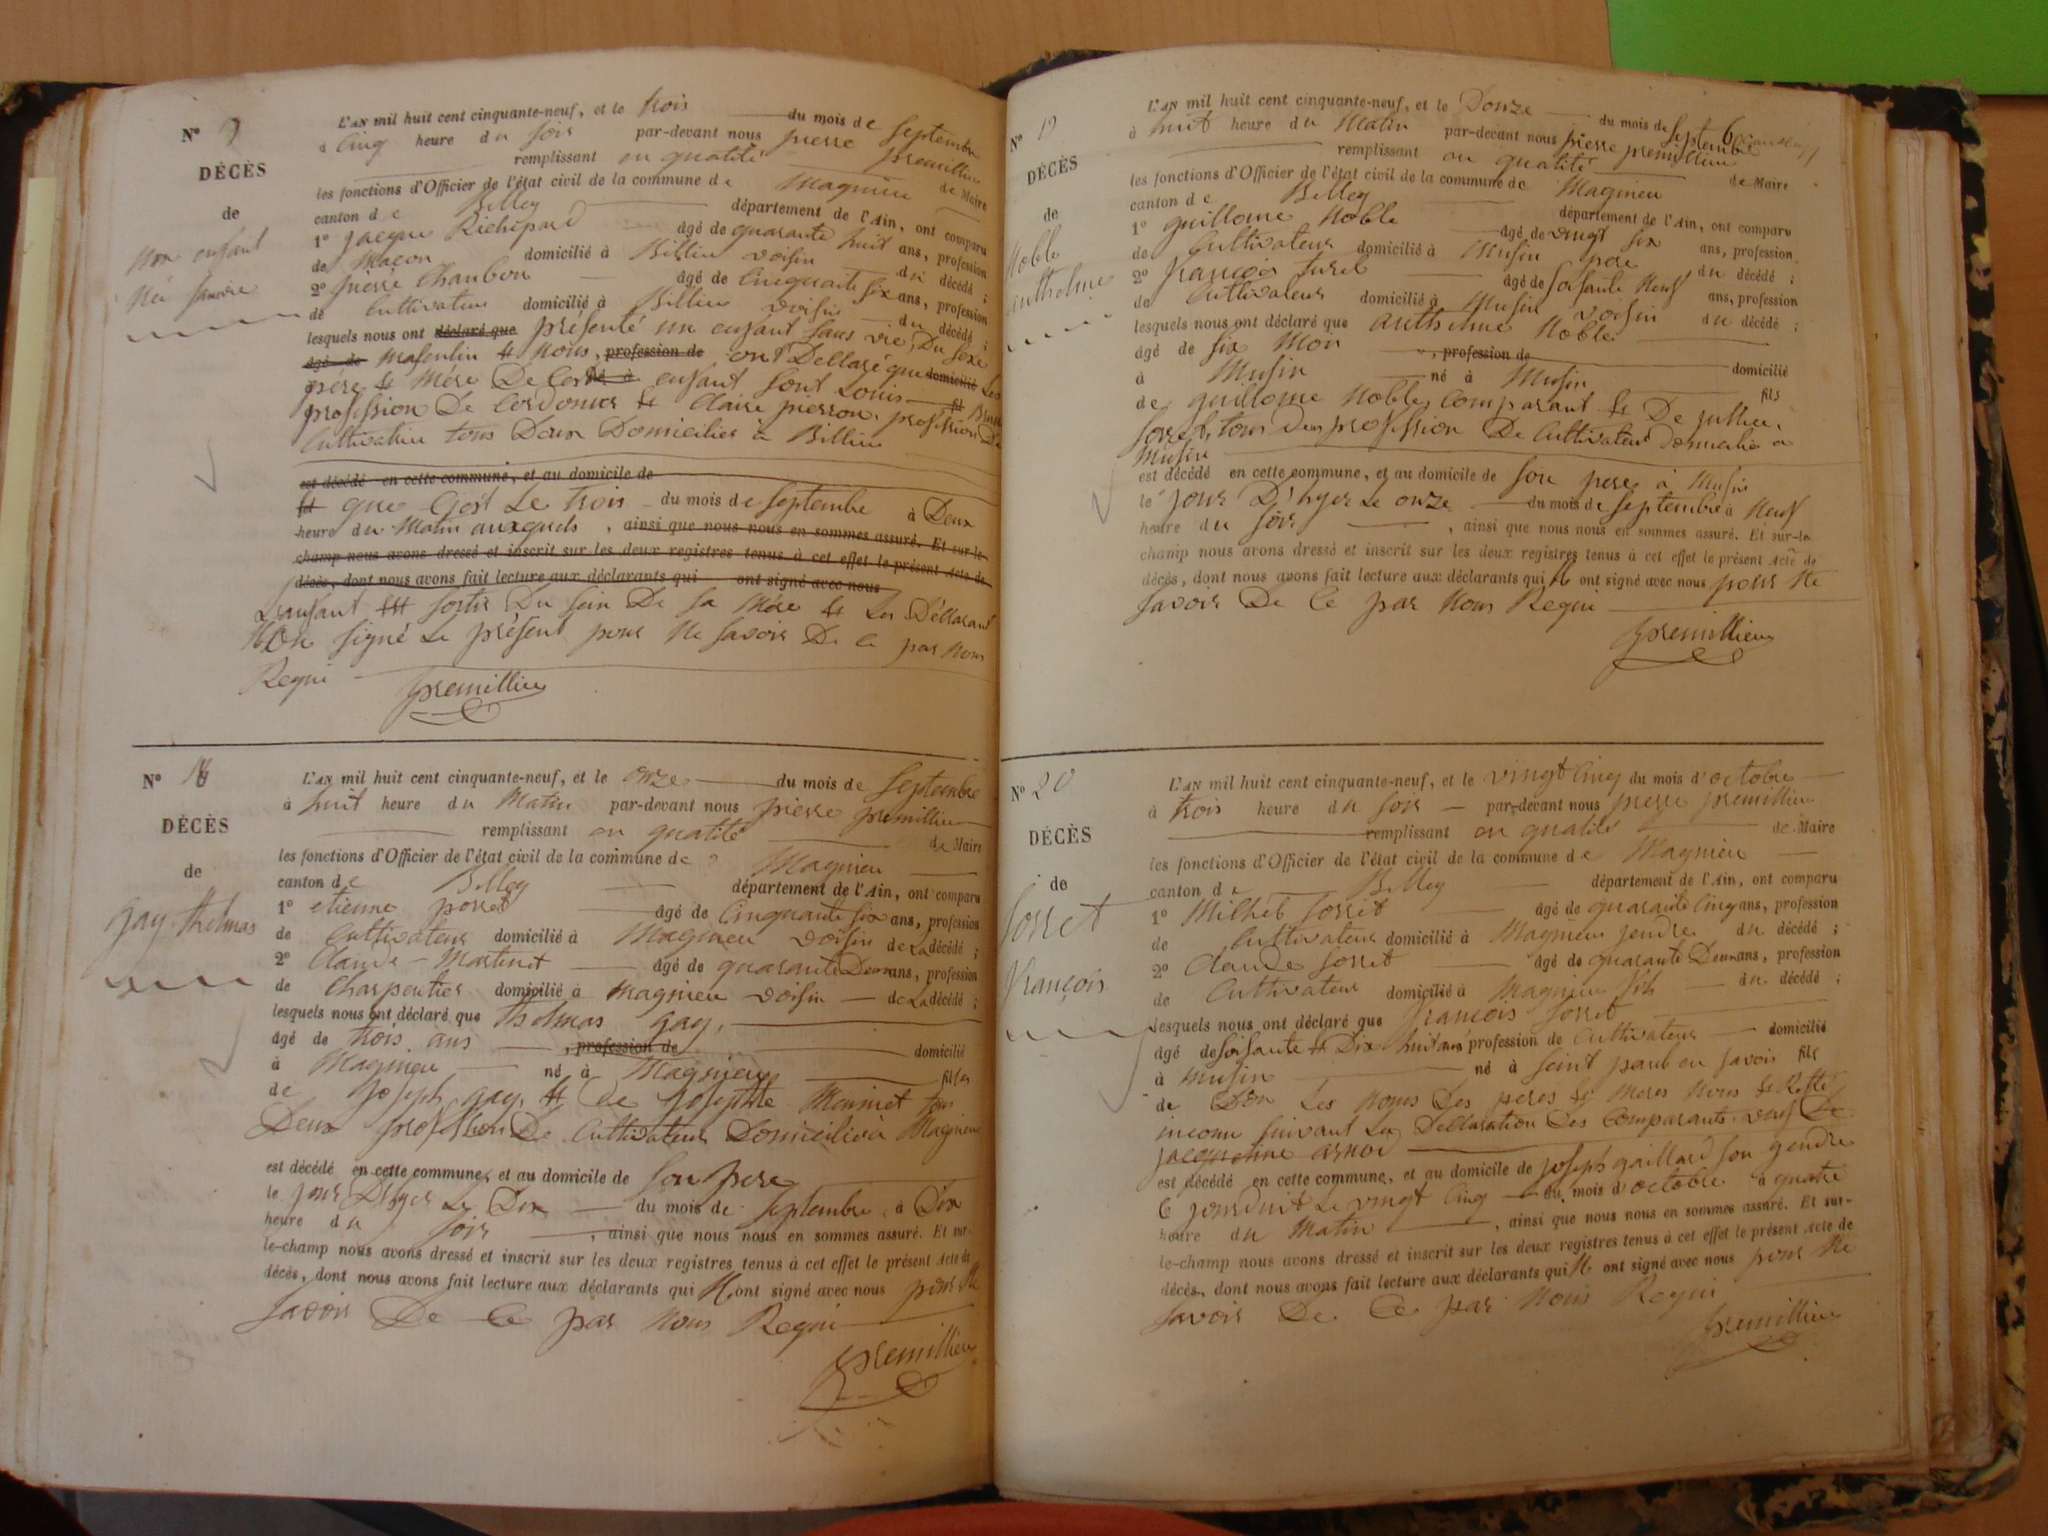 N°
DÉCÈS
de
Mor enfant
Né
L'AN mil huit cent cinquante-neuf, et le trois du mois de Septembre
à Cinq heure du soir par-devant nous pierre premillieu
remplissant en qualité de Maire
les fonctions d'Officier de l'état civil de la commune de Magnieu
canton de Belley département de l'Ain, ont comparu
1° jacque Richepard âgé de quarante huit ans, profession
de Maçon domicilié à Billieu voisin du décédé ;
2° pierre Chanbon âgé de Cinquante six ans, profession
de Cultivateur domicilié à Billieu voisin du décédé ;
lesquels nous ont déclaré que présenté un enfant sans vie, Du sexe
âgé de Masculin et Nous, profession de ont Dellaré que domicilié Les
père et Mère De Cest né à enfant sont Louis
profession De Cordonier et Claire pierron, profession De
Cultivateur tous Deux Domiciliés à Billieu
est décédé en cette commune, et au domicile de
le que C'est Le trois du mois de Septembre à Deux
heure du Matin auxquels , ainsi que nous nous en sommes assuré. Et sur-le-
champ nous avons dressé et inscrit sur les deux registres tenus à cet effet le présent Acte de
décès, dont nous avons fait lecture aux déclarants qui ont signé avec nous
L'enfant Est sortis Du sein De sa Mère et Les Déllarant
N'On signé Le présent pour Ne savoir De Ce par Nous
Requi
premillieu
N° 18
DÉCÈS
de
Gay Thelmas
L'AN mil huit cent cinquante-neuf, et le onze du mois de Septembre
à huit heure du Matin par-devant nous pierre premillieu
remplissant en qualité de Maire
les fonctions d'Officier de l'état civil de la commune de Magnieu
canton de Belley département de l'Ain, ont comparu
1° etienne porret âgé de Cinquante six ans, profession
de Cultivateur domicilié à Magnieu voisin de La décédé ;
2° Claude Martinet âgé de quarante Deux ans, profession
de Charpentier domicilié à Magnieu voisin de La décédé ;
lesquels nous ont déclaré que Thelmas Gay,
âgé de trois ans , profession de domicilié
à Magnieu né à Magnieu fils
de joseph gay, et De Josephte Monnet tous
Deux profession De Cultivateur Domicilié à Magnieu
est décédé en cette commune, et au domicile de Son pere
le jour D'hyer Le Dix du mois de Septembre, à Dix
heure du soir , ainsi que nous nous en sommes assuré. Et sur-
le-champ nous avons dressé et inscrit sur les deux registres tenus à cet effet le présent Acte de
décès, dont nous avons fait lecture aux déclarants qui N'ont signé avec nous pour Ne
savoir De Ce par Nous Requi
premillieu
N° 19
DÉCÈS
de
Noble
anthelme
L'AN mil huit cent cinquante-neuf, et le Douze du mois de Septembre
à huit heure du Matin par-devant nous pierre premillieu
remplissant en qualité de Maire
les fonctions d'Officier de l'état civil de la commune de Magnieu
canton de Belley département de l'Ain, ont comparu
1° guillome Noble âgé de vingt six ans, profession
de Cultivateur domicilié à Musin pere du décédé ;
2° françois turel âgé de soisante Neuf ans, profession
de Cultivateur domicilié à Musin voisin du décédé ;
lesquels nous ont déclaré que anthelme Noble
âgé de six Moi , profession de domicilié
à Musin né à Musin fils
de guillome Noble, Comparant et De jullie,
Sorret, tous Deux profession De Cultivateur Domicilié a
Musin
est décédé en cette commune, et au domicile de son pere à Musin
le jour D'hyer Le onze du mois de Septembre à Neuf
heure du soir , ainsi que nous nous en sommes assuré. Et sur-le-
champ nous avons dressé et inscrit sur les deux registres tenus à cet effet le présent Acte de
décès, dont nous avons fait lecture aux déclarants qui N' ont signé avec nous pour Ne
savoir De Ce par Nous Requi
premillieu
N° 20
DÉCÈS
de
Sorret
françois
L'AN mil huit cent cinquante-neuf, et le vingt Cinq du mois d'octobre
à trois heure du soir par-devant nous pierre premillieu
remplissant en qualité de Maire
les fonctions d'Officier de l'état civil de la commune de Magnieu
canton de Belley département de l'Ain, ont comparu
1° Milhél Sorret âgé de quarante Cinq ans, profession
de Cultivateur domicilié à Magnieu jendre du décédé ;
2° Claude Sorret âgé de quarante Deux ans, profession
de Cultivateur domicilié à Magnieu fils du décédé ;
lesquels nous ont déclaré que françois Sorret
âgé de soisante et Dix huit ans profession de Cultivateur domicilié
à Musin né à Seint paul en Savoir fils
de Don Les Noms Des peres et Meres Nous et Resté
inconu suivant La Dellaration Des Comparants veuf De
jacquemine arnod
est décédé en cette commune, et au domicile de joseph gaillard son gendre
le jourduit Le vingt Cinq du mois d'octobre à quatre
heure du Matin , ainsi que nous nous en sommes assuré. Et sur-
le-champ nous avons dressé et inscrit sur les deux registres tenus à cet effet le présent Acte de
décès, dont nous avons fait lecture aux déclarants qui N' ont signé avec nous pour Ne
savoir De Ce par Nous Requi
premillieu